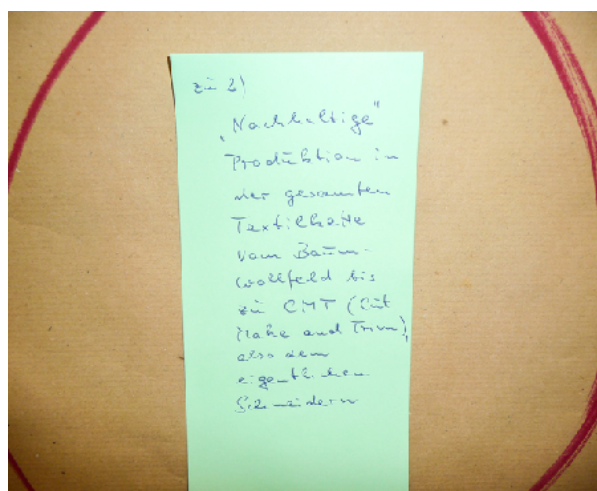 zu 2)
„Nachhaltige"
Produktion in
der gesamten
Textilkette
vom Baum-
wollfeld bis
zu CMT (Cut
Make and Trim),
also dem
eigentlichen
Schneidern